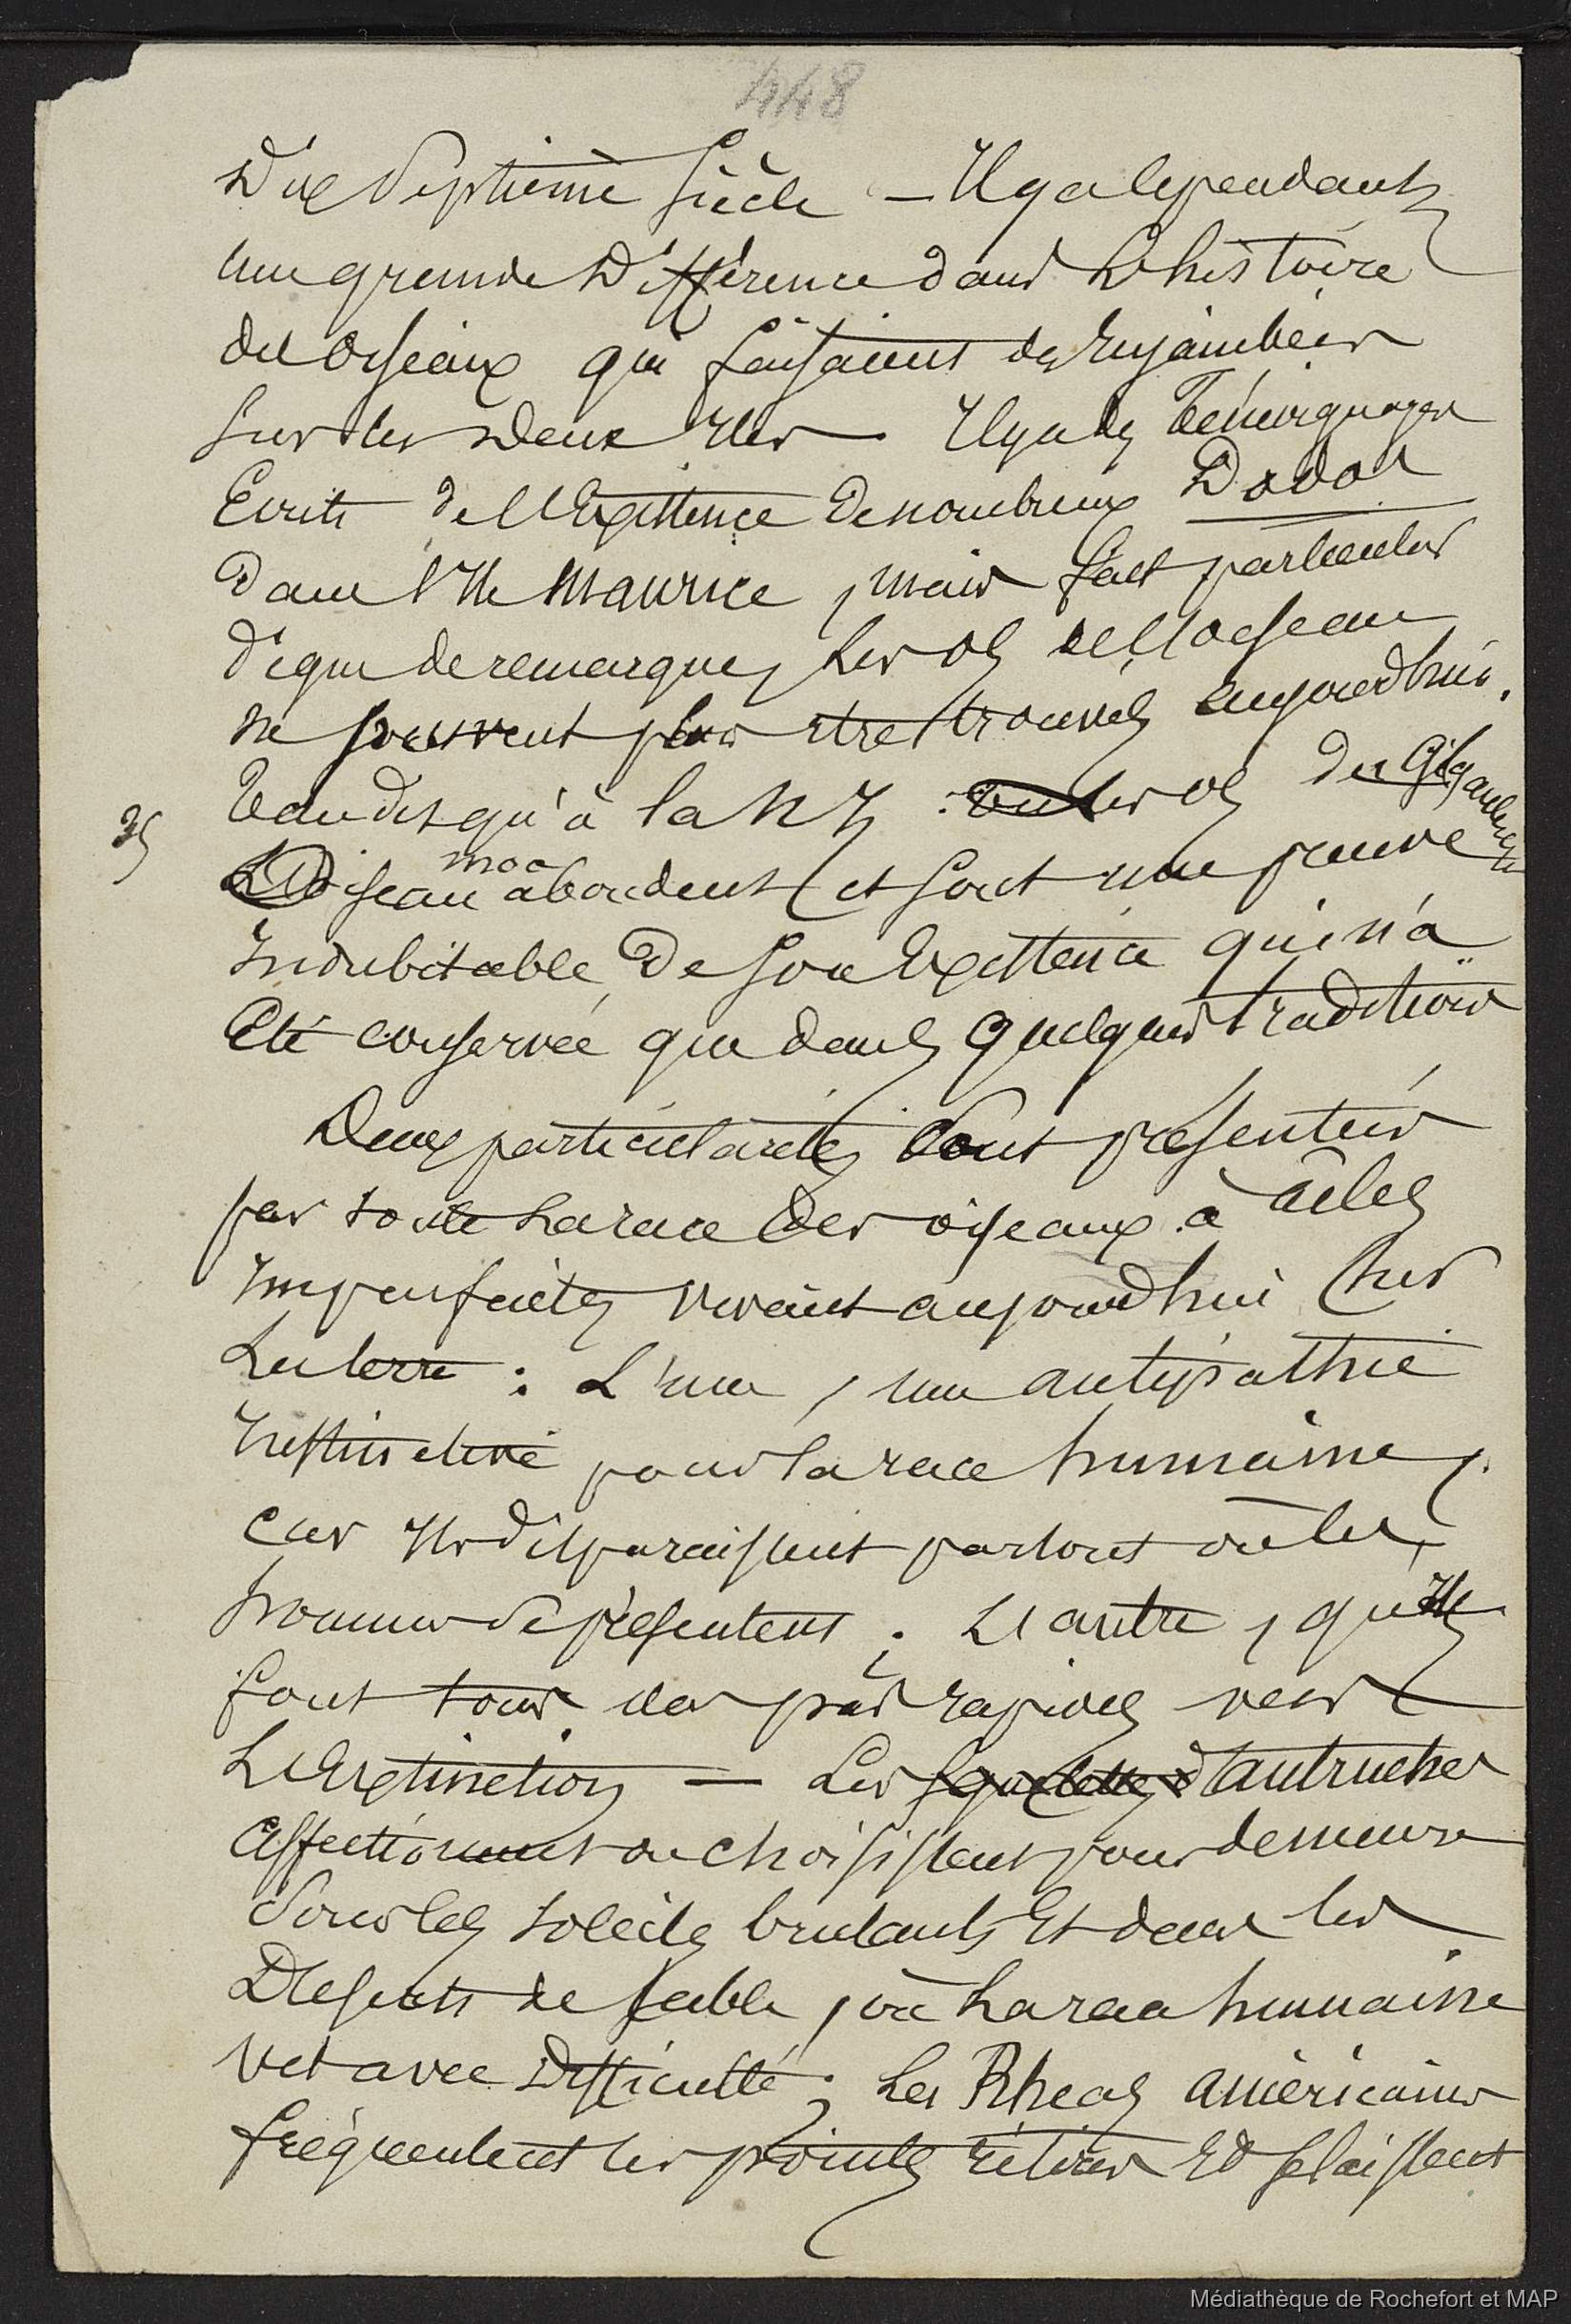 448
Dix Septieme Siècle – Il y a cependant
une grande Différence dans L'histoire
des Oiseaux qui faisaient des enjambées
sur les Deux Iles – Il y a des Témoignages
Ecrits de l'Existence de nombreux Dodos
dans l'Ile Maurice, mais fait particulier
digne de remarque, Les os de l'oiseau
ne peuvent plus etre trouvés aujourdhui.
35
Tandis qu'à la NZ : les os du Gigantesque
Oiseau moa abondent et sont une preuve
Indubitable de son Existence qui n'a
Eté conservée que dans quelques traditions
Deux particularités sont présentées
par toute La race des oiseaux à ailes
Imparfaites vivant aujourdhui sur
La terre : L'une, une antipathie
Instinctive pour la race humaine,
car Ils disparaissent partout où les
hommes se présentent ; L'autre, qu'ils
font tous des pas rapides vers
L'Extinction – Les autruches
affectionnent ou choisissent pour demeure
Sous les soleils brulants Et dans les
Déserts de sable, où La race humaine
vit avec Difficulté ; Les Rheas américains
fréquentent les points retirés Et se laissent
Médiathèque de Rochefort et MAP